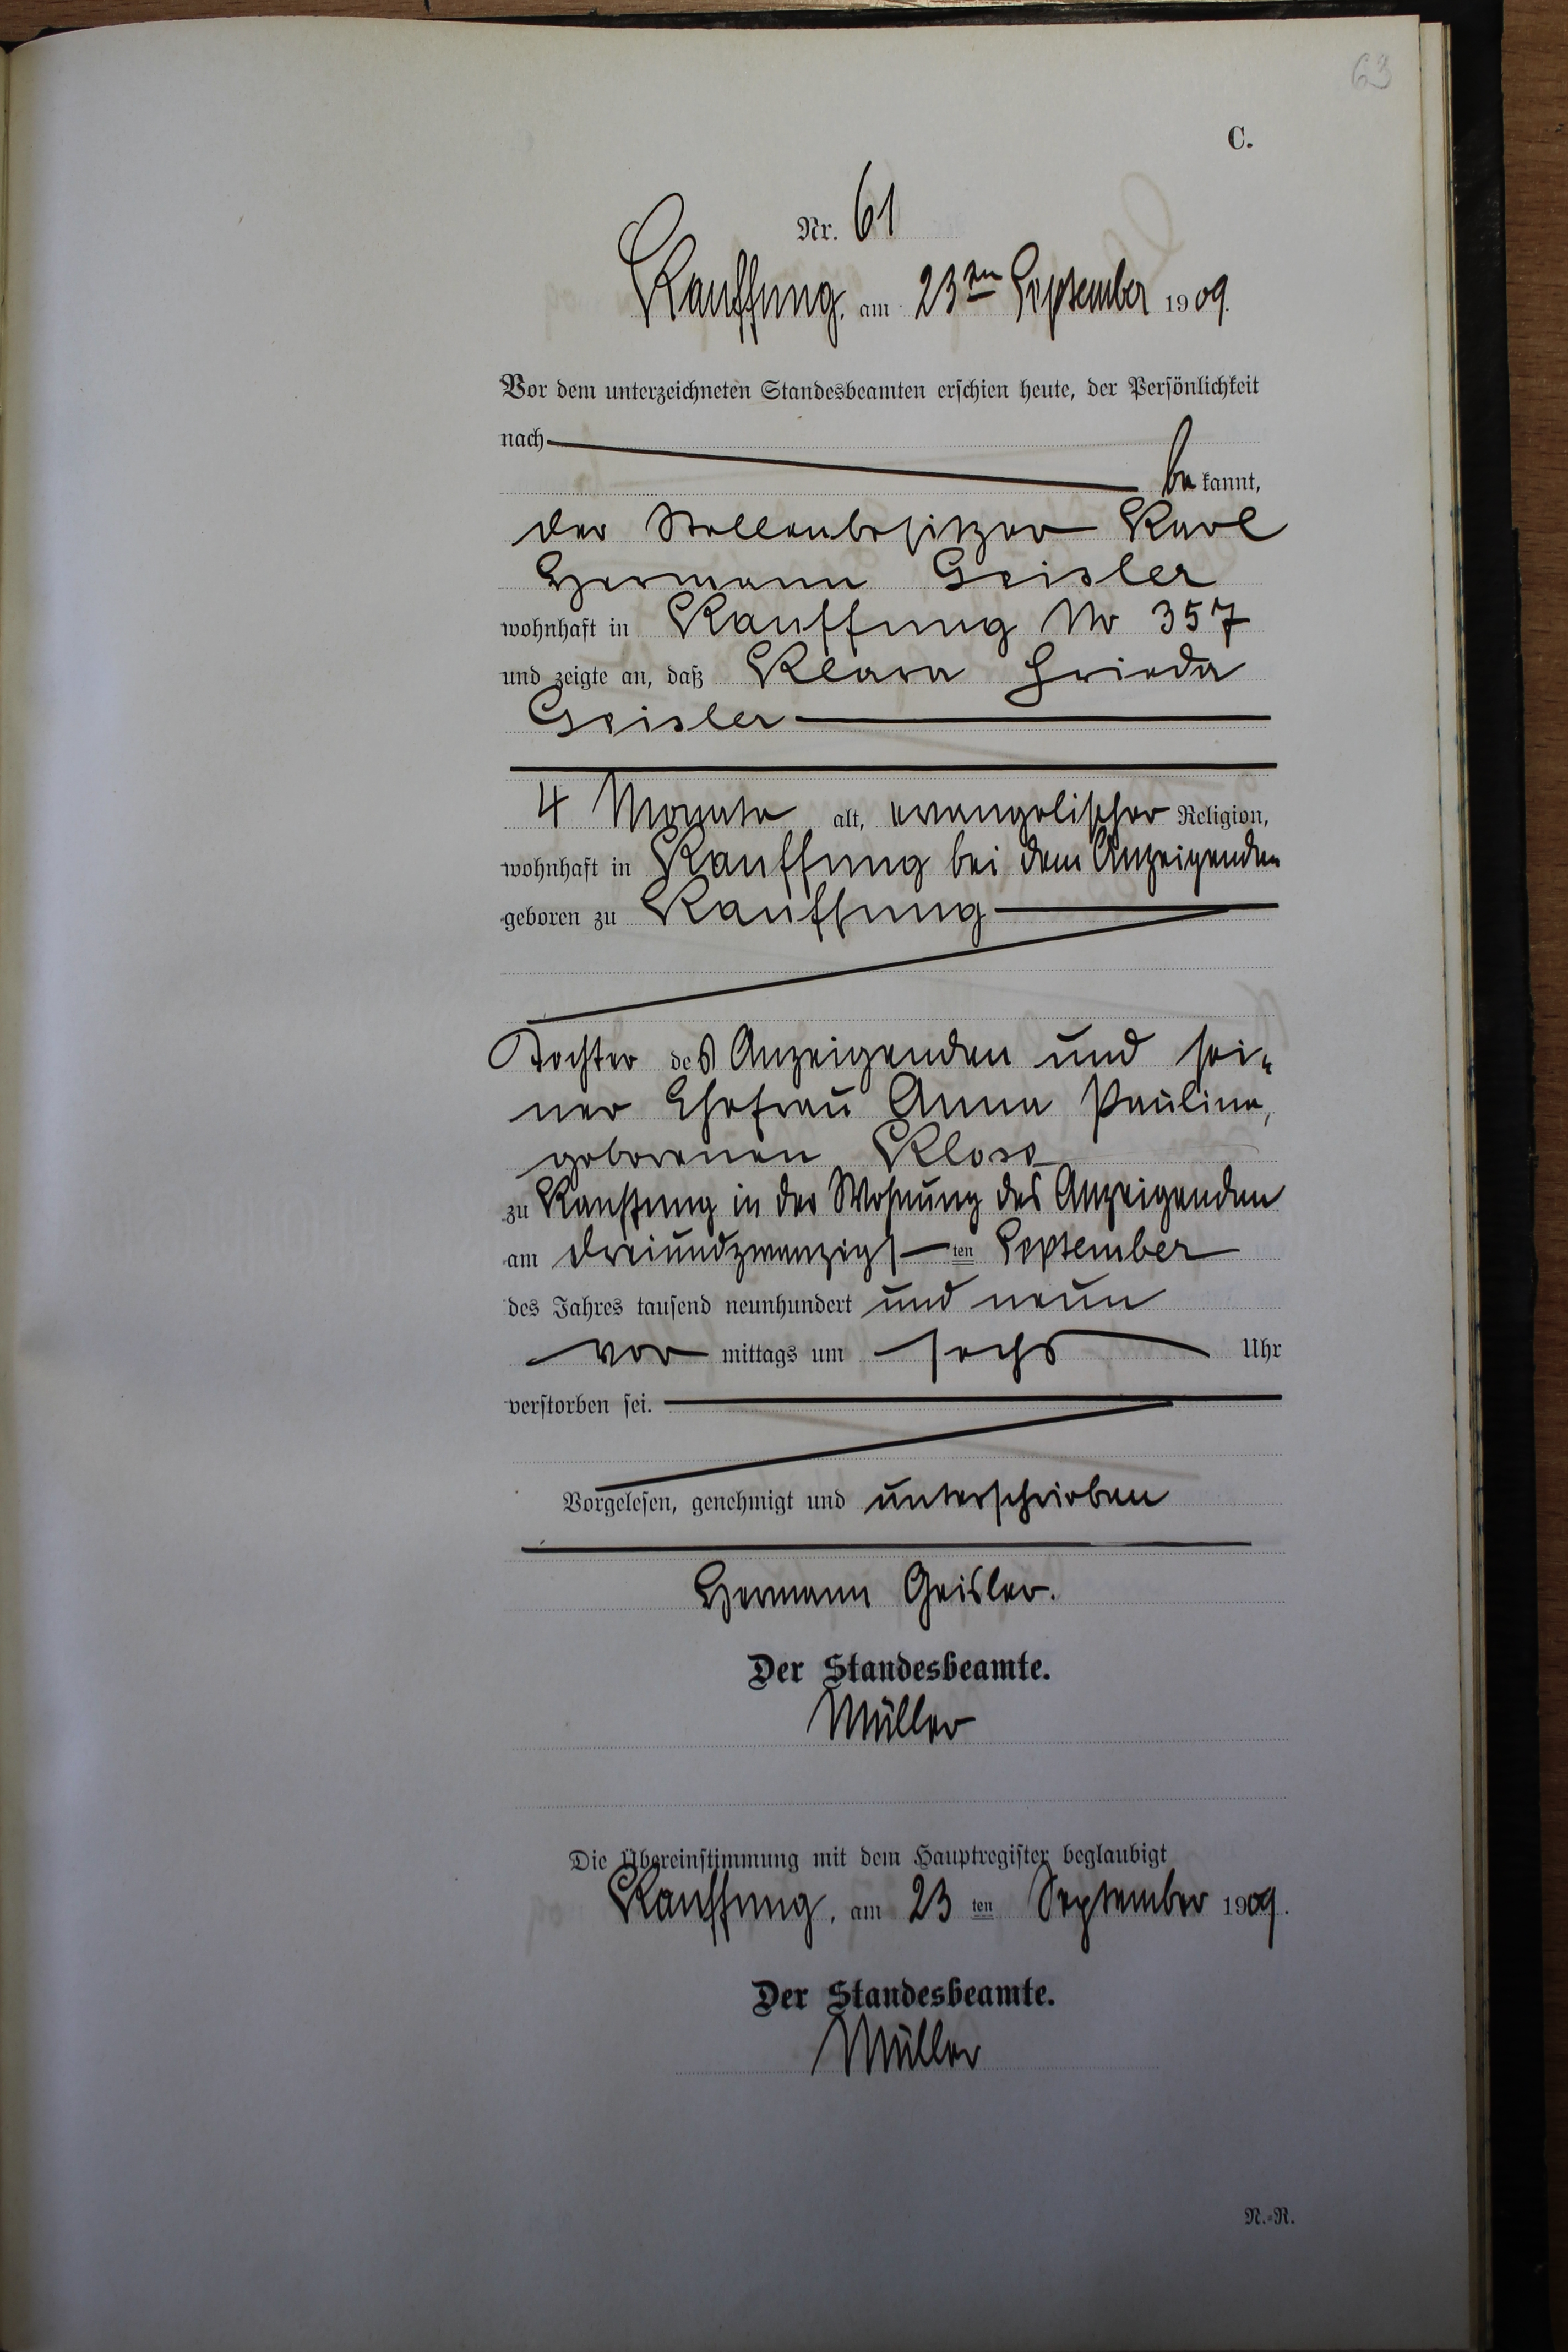 63
C.
Nr. 61
Kauffung, am 23ten September 1909.
Vor dem unterzeichneten Standesbeamten erschien heute, der Persönlichkeit
nach
be kannt,
der Stellenbesitzer Karl
Hermann Geisler
wohnhaft in Kauffung No 357
und zeigte an, daß Klara Frieda
Geisler
4 Monate alt, evangelischer Religion,
wohnhaft in Kauffung bei dem Anzeigenden
geboren zu Kauffung
Tochter des Anzeigenden und sei-
ner Ehefrau Anna Pauline,
geborenen Klose
zu Kauffung in der Wohnung des Anzeigenden
am dreiundzwanzigs ten September
des Jahres tausend neunhundert und neun
vor mittags um sechs Uhr
verstorben sei.
Vorgelesen, genehmigt und unterschrieben
Hermann Geisler.
Der Standesbeamte.
Müller
Die Übereinstimmung mit dem Hauptregister beglaubigt
Kauffung, am 23 ten September 1909.
Der Standesbeamte.
Müller
N.-R.